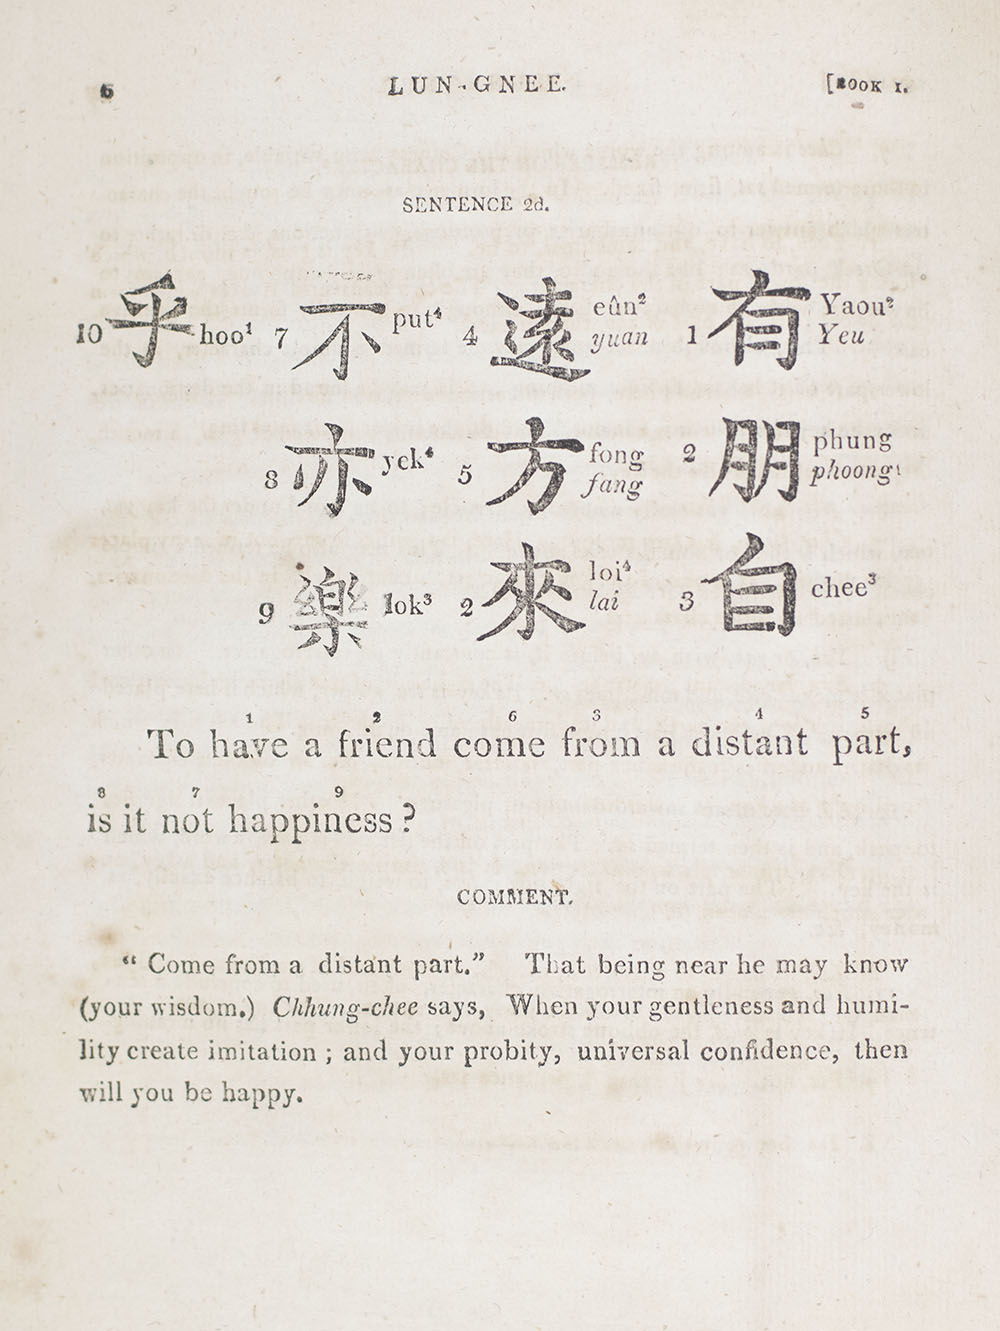 6 LUN-GNEE. [BOOK I.
SENTENCE 2d.
10 乎 hoo¹ 7 不 put⁴ 4 遠 eûn² yuan 1 有 Yaou² Yeu
8 亦 yek⁴ 5 方 fong fang 2 朋 phung phoong¹
9 樂 lok³ 2 來 loi⁴ lai 3 自 chee³
1 2 6 3 4 5
To have a friend come from a distant part,
8 7 9
is it not happiness?
COMMENT.
“ Come from a distant part.” That being near he may know
(your wisdom.) Chhung-chee says, When your gentleness and humi-
lity create imitation ; and your probity, universal confidence, then
will you be happy.